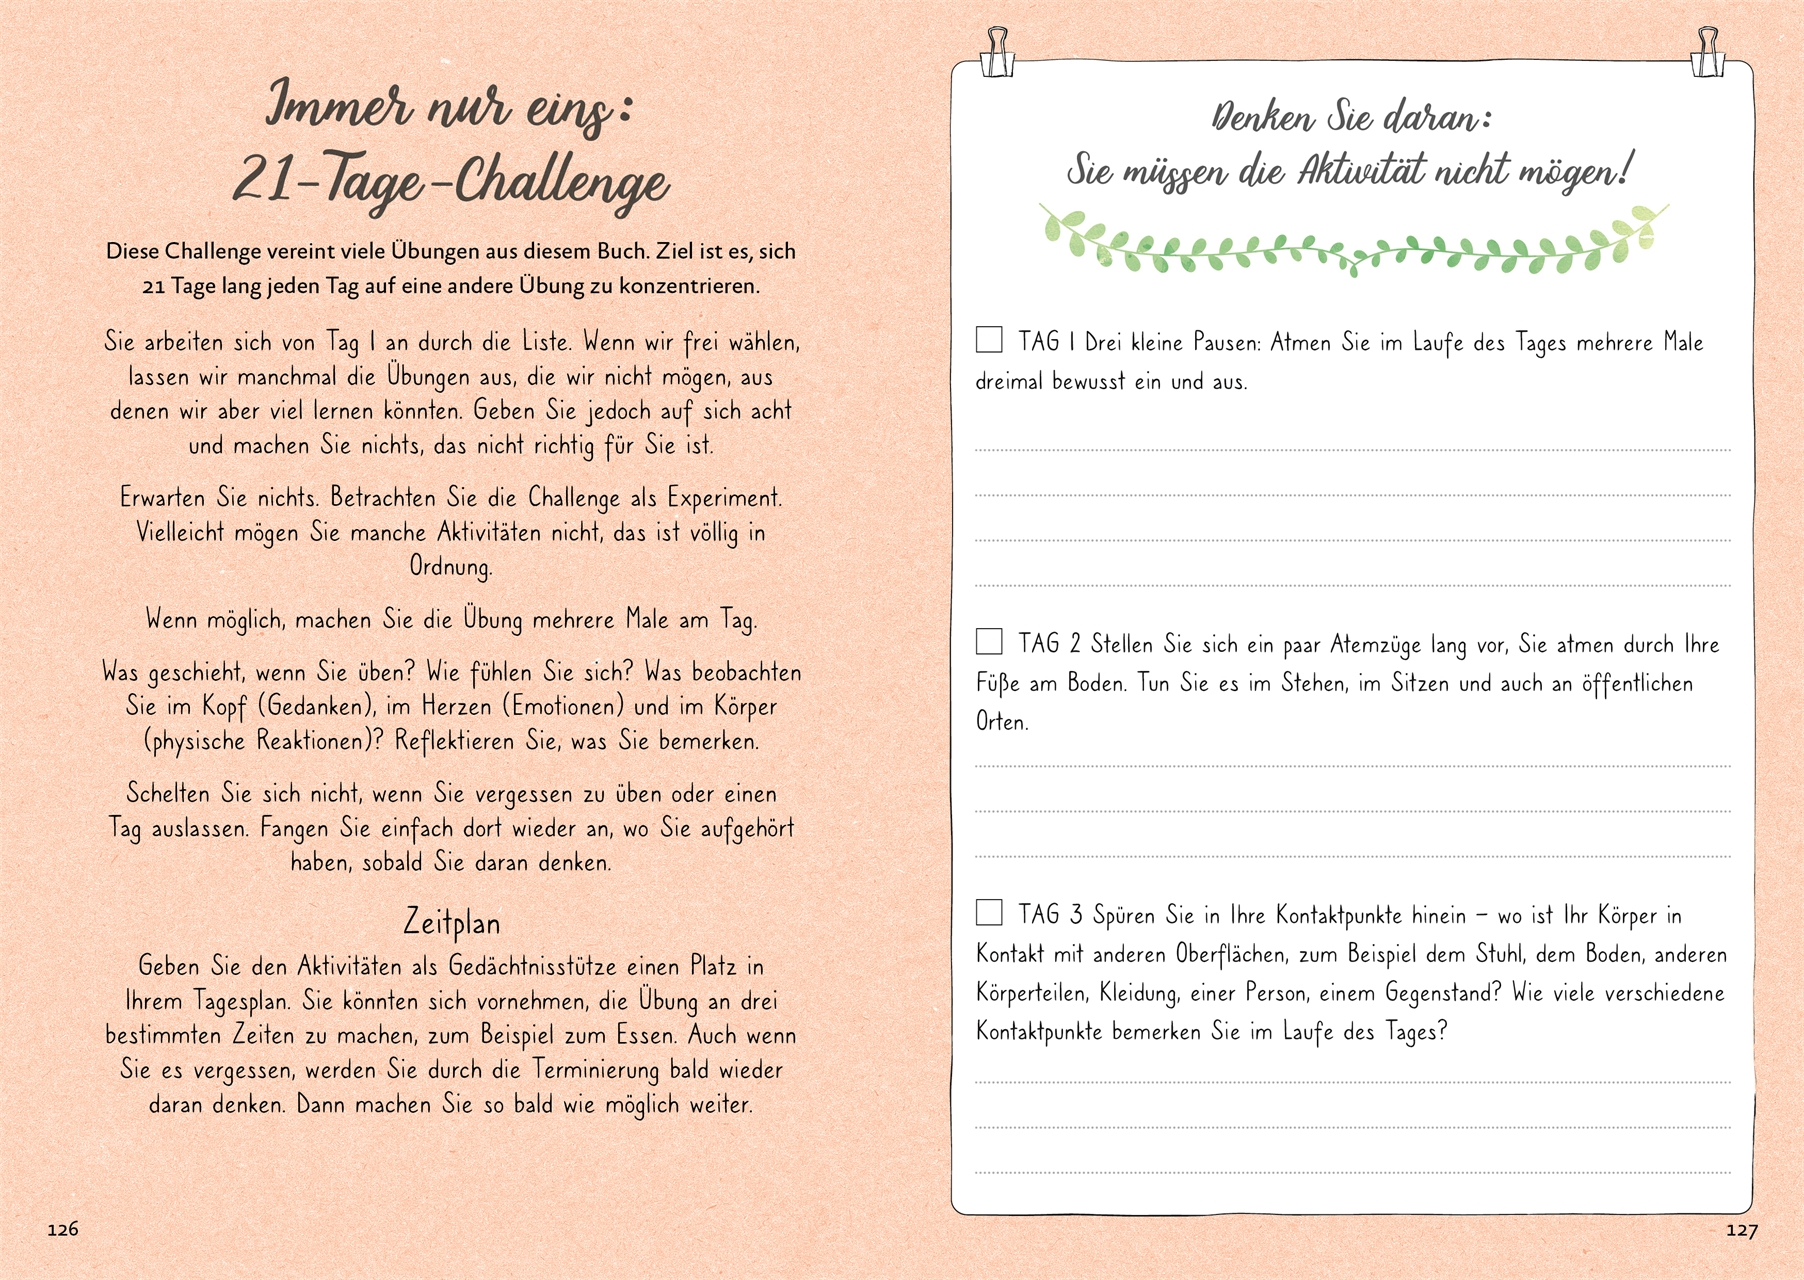 Immer nur eins:
21-Tage-Challenge
Diese Challenge vereint viele Übungen aus diesem Buch. Ziel ist es, sich
21 Tage lang jeden Tag auf eine andere Übung zu konzentrieren.
Sie arbeiten sich von Tag 1 an durch die Liste. Wenn wir frei wählen,
lassen wir manchmal die Übungen aus, die wir nicht mögen, aus
denen wir aber viel lernen könnten. Geben Sie jedoch auf sich acht
und machen Sie nichts, das nicht richtig für Sie ist.
Erwarten Sie nichts. Betrachten Sie die Challenge als Experiment.
Vielleicht mögen Sie manche Aktivitäten nicht, das ist völlig in
Ordnung.
Wenn möglich, machen Sie die Übung mehrere Male am Tag.
Was geschieht, wenn Sie üben? Wie fühlen Sie sich? Was beobachten
Sie im Kopf (Gedanken), im Herzen (Emotionen) und im Körper
(physische Reaktionen)? Reflektieren Sie, was Sie bemerken.
Schelten Sie sich nicht, wenn Sie vergessen zu üben oder einen
Tag auslassen. Fangen Sie einfach dort wieder an, wo Sie aufgehört
haben, sobald Sie daran denken.
Zeitplan
Geben Sie den Aktivitäten als Gedächtnisstütze einen Platz in
Ihrem Tagesplan. Sie könnten sich vornehmen, die Übung an drei
bestimmten Zeiten zu machen, zum Beispiel zum Essen. Auch wenn
Sie es vergessen, werden Sie durch die Terminierung bald wieder
daran denken. Dann machen Sie so bald wie möglich weiter.
126
Denken Sie daran:
Sie müssen die Aktivität nicht mögen!
TAG 1 Drei kleine Pausen: Atmen Sie im Laufe des Tages mehrere Male
dreimal bewusst ein und aus.
TAG 2 Stellen Sie sich ein paar Atemzüge lang vor, Sie atmen durch Ihre
Füße am Boden. Tun Sie es im Stehen, im Sitzen und auch an öffentlichen
Orten.
TAG 3 Spüren Sie in Ihre Kontaktpunkte hinein – wo ist Ihr Körper in
Kontakt mit anderen Oberflächen, zum Beispiel dem Stuhl, dem Boden, anderen
Körperteilen, Kleidung, einer Person, einem Gegenstand? Wie viele verschiedene
Kontaktpunkte bemerken Sie im Laufe des Tages?
127